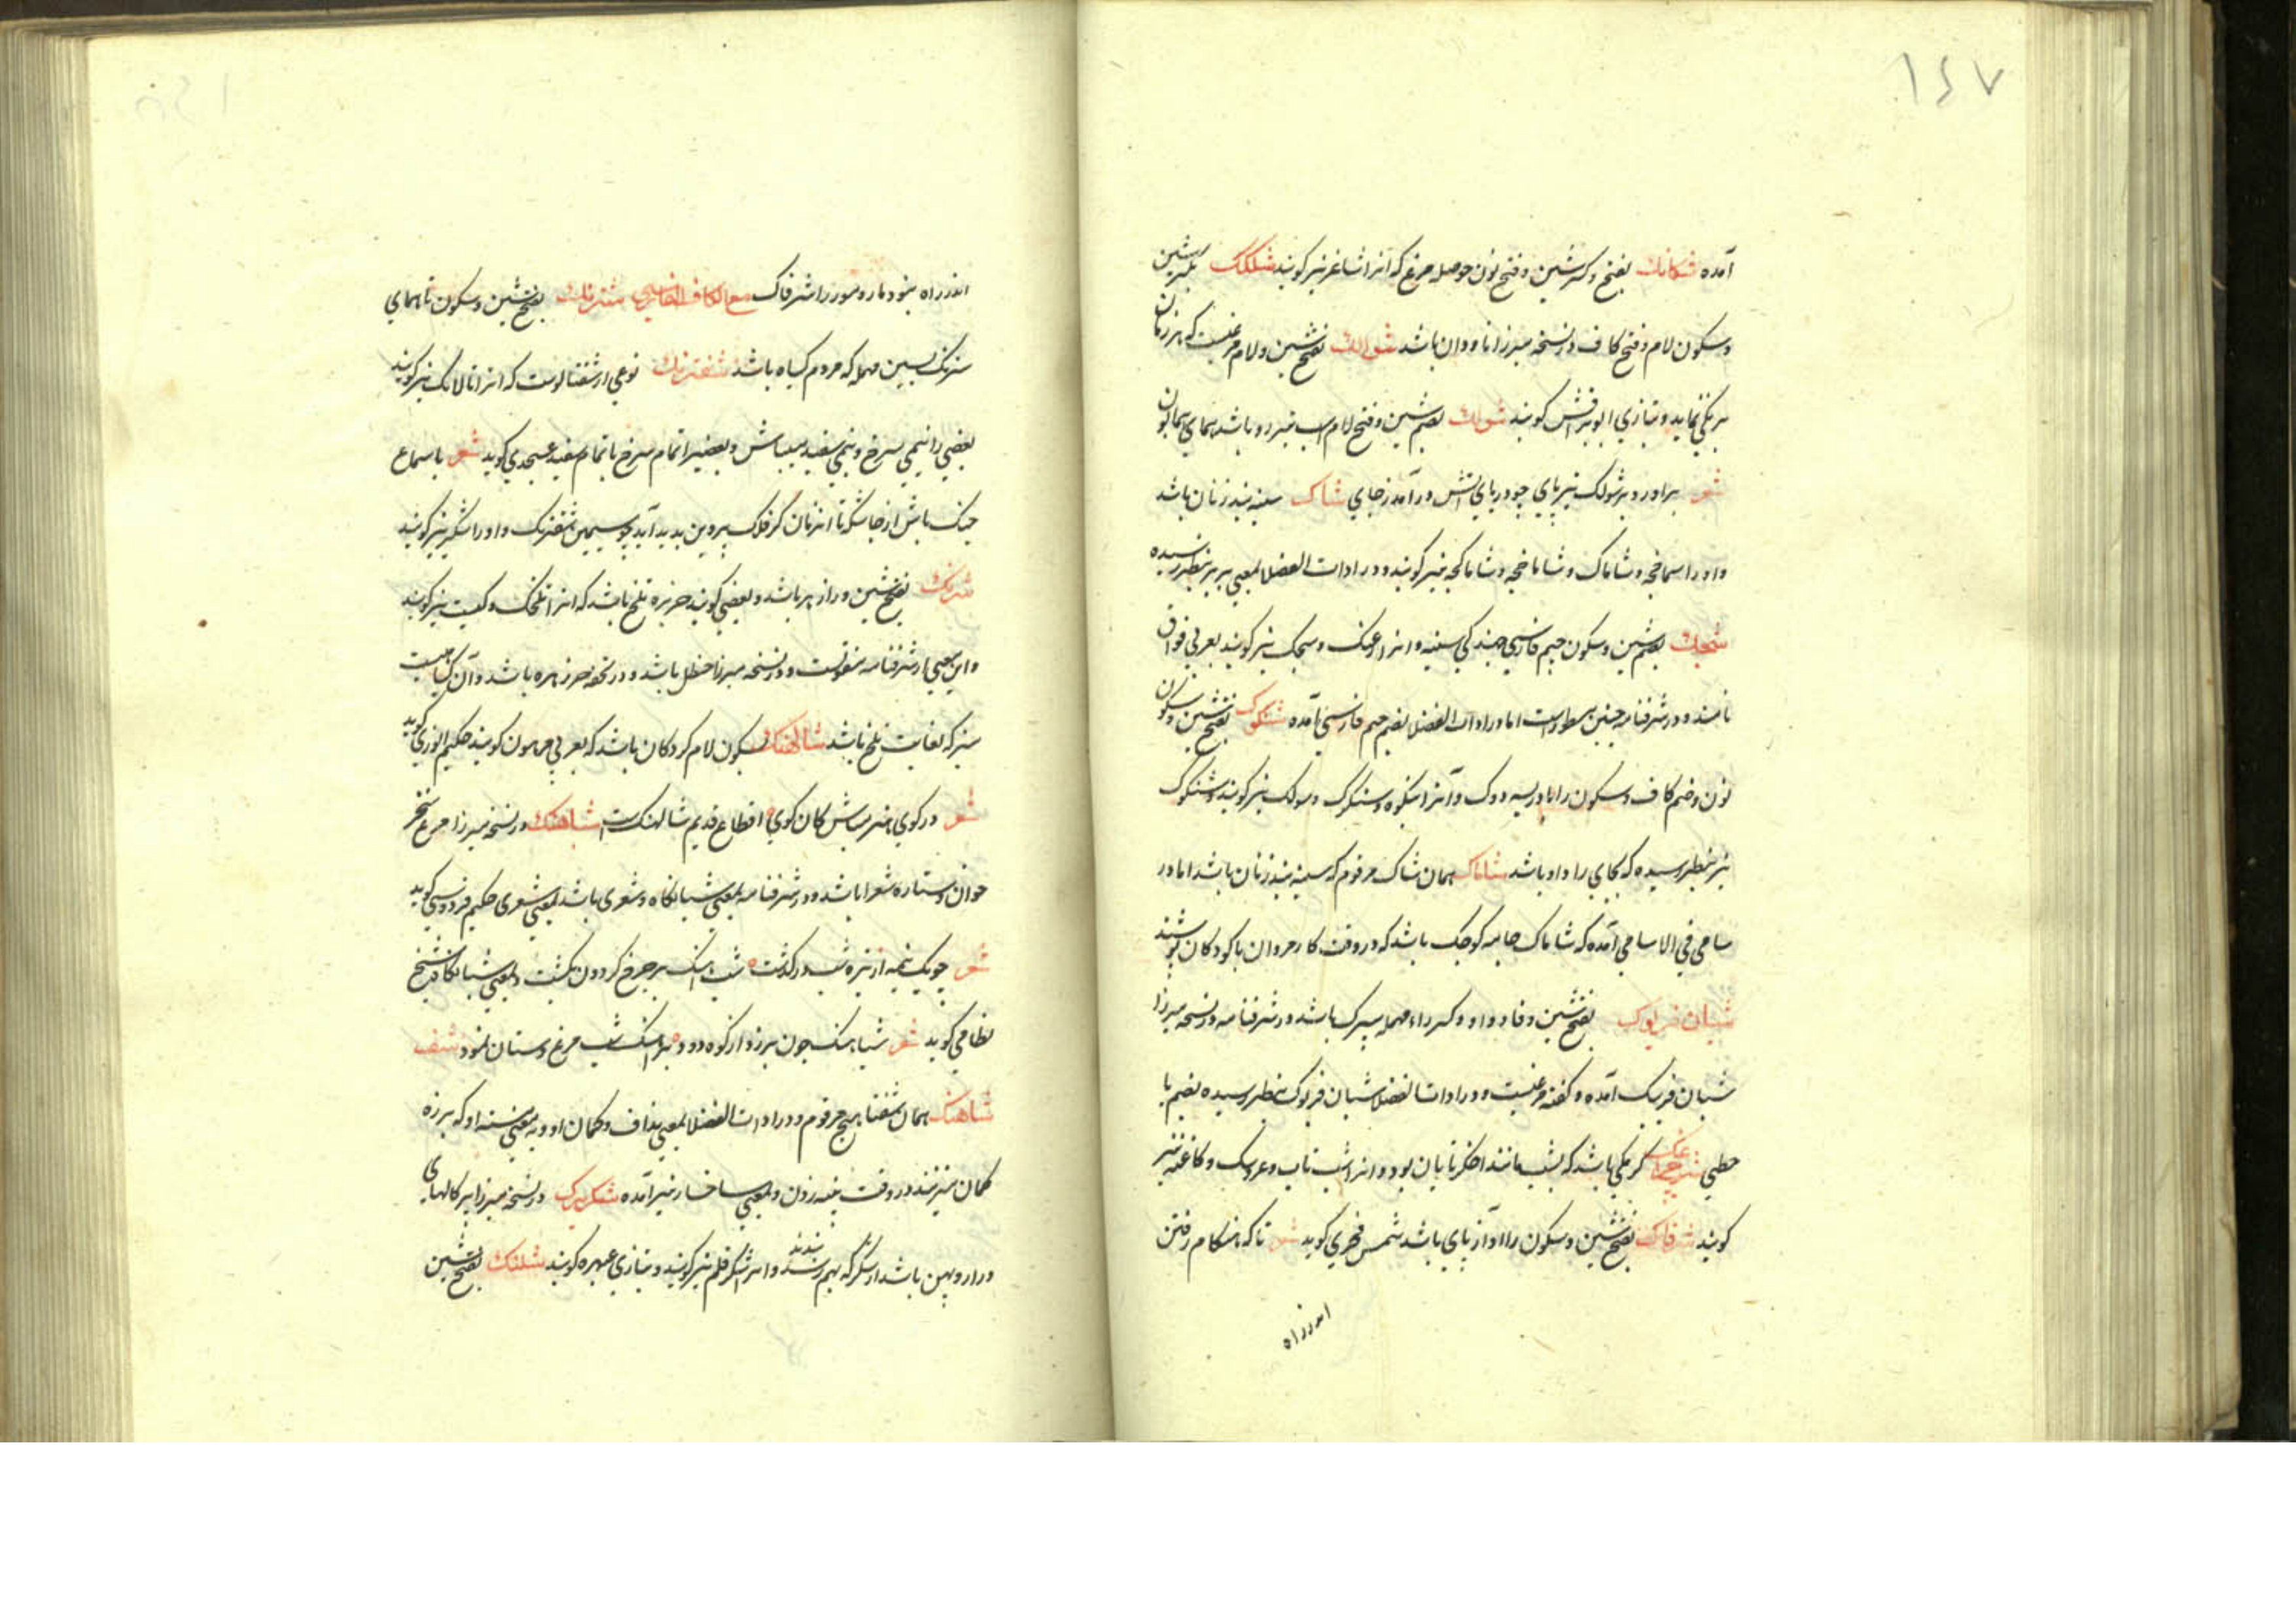 ١٤٧
آمده شکانک بفتح و کسر شین و فتح نون حوصله مرغ که انرا شاغر نیز کویند شلکک بکسر شین
و سکون لام و فتح کاف در نسخه میرزا ناودان باشد شوالک بفتح شین و لام مرغیست که هر زمان
برنکی نماید و بتازی ابوبراقش کویند شولک بضم شین و فتح لام اسب تیزرو باشد همای همایون
شعر براورد بر شولک تیزپای چو دریای آتش درآمد ز جای شاک سینه بند زنان باشد
و او را سماخچه و شاماک و شاماخچه و شاماکچه نیز کویند و در ادات الفضلا بمعنی بز بنظر رسیده
شجک بضم شین و سکون جیم فارسی جهندکی سینه و انرا وعک و سجک نیز کویند بعربی فواق
نامند و در شرفنامه چنین مسطورست اما در ادات الفضلا بضم جیم فارسی آمده شنکرک بفتح شین و سکون
نون و ضم کاف و سکون را بادریسه دوک و آنرا
نیز بنظر رسیده که بجای را واو باشد شاماک همان شاک مرقوم که سینه بند زنان باشد اما در
سامی فی الاسامی آمده که شاماک جامه کوچک باشد که در وقت کار مردان یا کودکان پوشند
شبان فریوک بفتح شین و فا و واو و کسر راء مهمله شپرک باشد در شرفنامه و در نسخه میرزا
شبان فریک آمده و کفته مرغیست و در ادات الفضلا شبان فریوک بنظر رسیده بضم با
حطی شب چراغک کرمکی باشد که بشب مانند اخکر تابان بود و انرا شب تاب و عروسک و کاغنه نیز
کویند شرفاک بفتح شین و سکون را آواز پای باشد شمس فخری کوید شعر تا که هنکام رفتن
اندر راه
اندر راه بنود مار و مور را شرفاک مع الکاف الفارسی شترنک بفتح شین و سکون تا همای
سترنک بسین مهمله که مردم کیاه باشد شفترنک نوعی از شفتالوست که انرا تالانک نیز کویند
بعضی را نیمی سرخ و نیمی سفید میباشد و بعضیرا تمام سرخ یا تمام سفید عسجدی کوید شعر با سماع
چنک باش از چاشتکه تا انزمان کز فلک پروین بدید آید چو سیمین شفترنک و او را شکر نیز کویند
شرنک بفتح شین و را زهر باشد و بعضی کویند خربزه تلخ باشد که انرا تلخک و کبست نیز کویند
و این معنی از شرفنامه منقولست و در نسخه میرزا حنظل باشد و در تحفه خرزهره باشد و آن کیاهیست
سبز که بغایت تلخ باشد شالهنک بسکون لام کروکان باشد که بعربی مرهون کویند حکیم انوری کوید
شعر در کوی هنر مباش کان کوی اقطاع قدیم شالهنکست شباهنک در نسخه میرزا مرغ سحر
خوان و ستاره شعرا باشد و در شرفنامه بمعنی شبانکاه و شعری باشد بمعنی شعری حکیم فردوسی کوید
شعر چو یک نیمه از تیره شب درکذشت شب آهنک بر چرخ کردون بکشت و بمعنی شبانکاه شیخ
نظامی کوید شعر شباهنک چون برزد از کوه دود بر آهنک شب مرغ دستان نمود شف
شاهنک همان شفشاهنج مرقوم و در ادات الفضلا بمعنی نداف و کمان او و بمعنی مشته او که بر زه
کمان میزنند در وقت پنبه زدن و بمعنی شاخسار نیز آمده شکربرک در نسخه میرزا پرکالهای
دراز و پهن باشد از شکر که بهم بندند و انرا شکرقلم نیز کویند و بتازی عبهره کویند شلنک بفتح شین